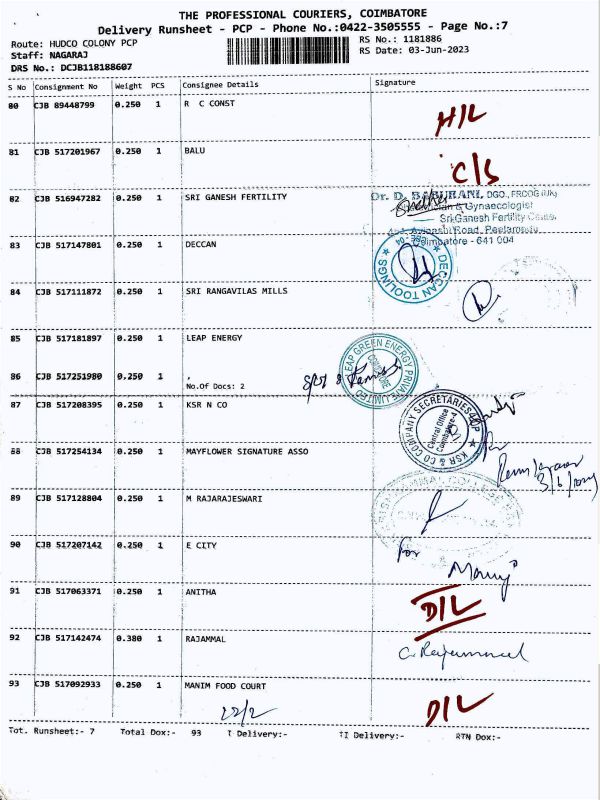 THE PROFESSIONAL COURIERS, COIMBATORE
Delivery Runsheet - PCP - Phone No.:0422-3505555 - Page No.:7
Route: HUDCO COLONY PCP
RS No.: 1181886
Staff: NAGARAJ
RS Date: 03-Jun-2023
DRS No.: DCJB118188607
S No Consignment No Weight PCS Consignee Details Signature
80 CJB 89448799 0.250 1 R C CONST
H/L
81 CJB 517201967 0.250 1 BALU
C/S
82 CJB 516947282 0.250 1 SRI GANESH FERTILITY
Dr. D. DGO., FRCOG (UK)
& Gynaecologist
Sri Ganesh Fertility
Avinashi Road, Peelamedu,
Coimbatore - 641 004
83 CJB 517147801 0.250 1 DECCAN
DECCAN TOOLINGS
CBE-04
84 CJB 517111872 0.250 1 SRI RANGAVILAS MILLS
85 CJB 517181897 0.250 1 LEAP ENERGY
LEAP GREEN ENERGY PRIVATE LIMITED
COIMBATORE
86 CJB 517251980 0.250 1 ,
No.Of Docs: 2
87 CJB 517208395 0.250 1 KSR N CO
KSR & CO COMPANY SECRETARIES
Central Office
Coimbatore-4
88 CJB 517254134 0.250 1 MAYFLOWER SIGNATURE ASSO
89 CJB 517128804 0.250 1 M RAJARAJESWARI
90 CJB 517207142 0.250 1 E CITY
for
91 CJB 517063371 0.250 1 ANITHA
D/L
92 CJB 517142474 0.380 1 RAJAMMAL
C. Rajammal
93 CJB 517092933 0.250 1 MANIM FOOD COURT
D/L
Tot. Runsheet:- 7 Total Dox:- 93 I Delivery:- II Delivery:- RTN Dox:-